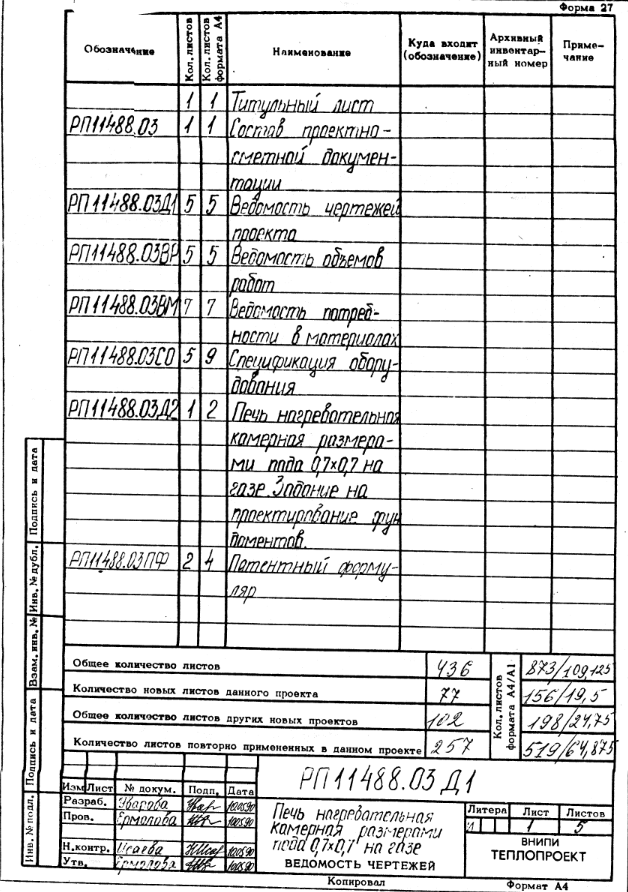 Форма 27
Обозначение Кол. листов Кол. листов формата А4 Наименование Куда входит (обозначение) Архивный инвентарный номер Примечание
1 1 Титульный лист
РП11488.03 1 1 Состав проектно-
сметной докумен-
тации
РП11488.03Д1 5 5 Ведомость чертежей
проекта
РП11488.03ВР 5 5 Ведомость объемов
работ
РП11488.03ВМ 7 7 Ведомость потреб-
ности в материалах
РП11488.03СО 5 9 Спецификация обору-
дования
РП11488.03Д2 1 2 Печь нагревательная
камерная размера-
ми пода 0,7×0,7 на
газе. Задание на
проектирование фун
даментов.
РП11488.03ПФ 2 4 Патентный форму-
ляр
Общее количество листов 436 873/109,125
Количество новых листов данного проекта 77 156/19,5
Общее количество листов других новых проектов 102 198/24,75
Количество листов повторно примененных в данном проекте 257 519/64,875
Кол. листов формата А4/А1
Подпись и дата
Инв. № дубл.
Взам. инв. №
Подпись и дата
Инв. № подл.
РП11488.03 Д1
Изм Лист № докум. Подп. Дата
Разраб. Уварова 10.05.90
Пров. Ермолова 10.05.90
Н.контр. Исаева 10.05.90
Утв. Ермолова 10.05.90
Печь нагревательная
камерная размерами
пода 0,7×0,7 на газе
ВЕДОМОСТЬ ЧЕРТЕЖЕЙ
Литера Лист Листов
И 1 5
ВНИПИ
ТЕПЛОПРОЕКТ
Копировал Формат А4